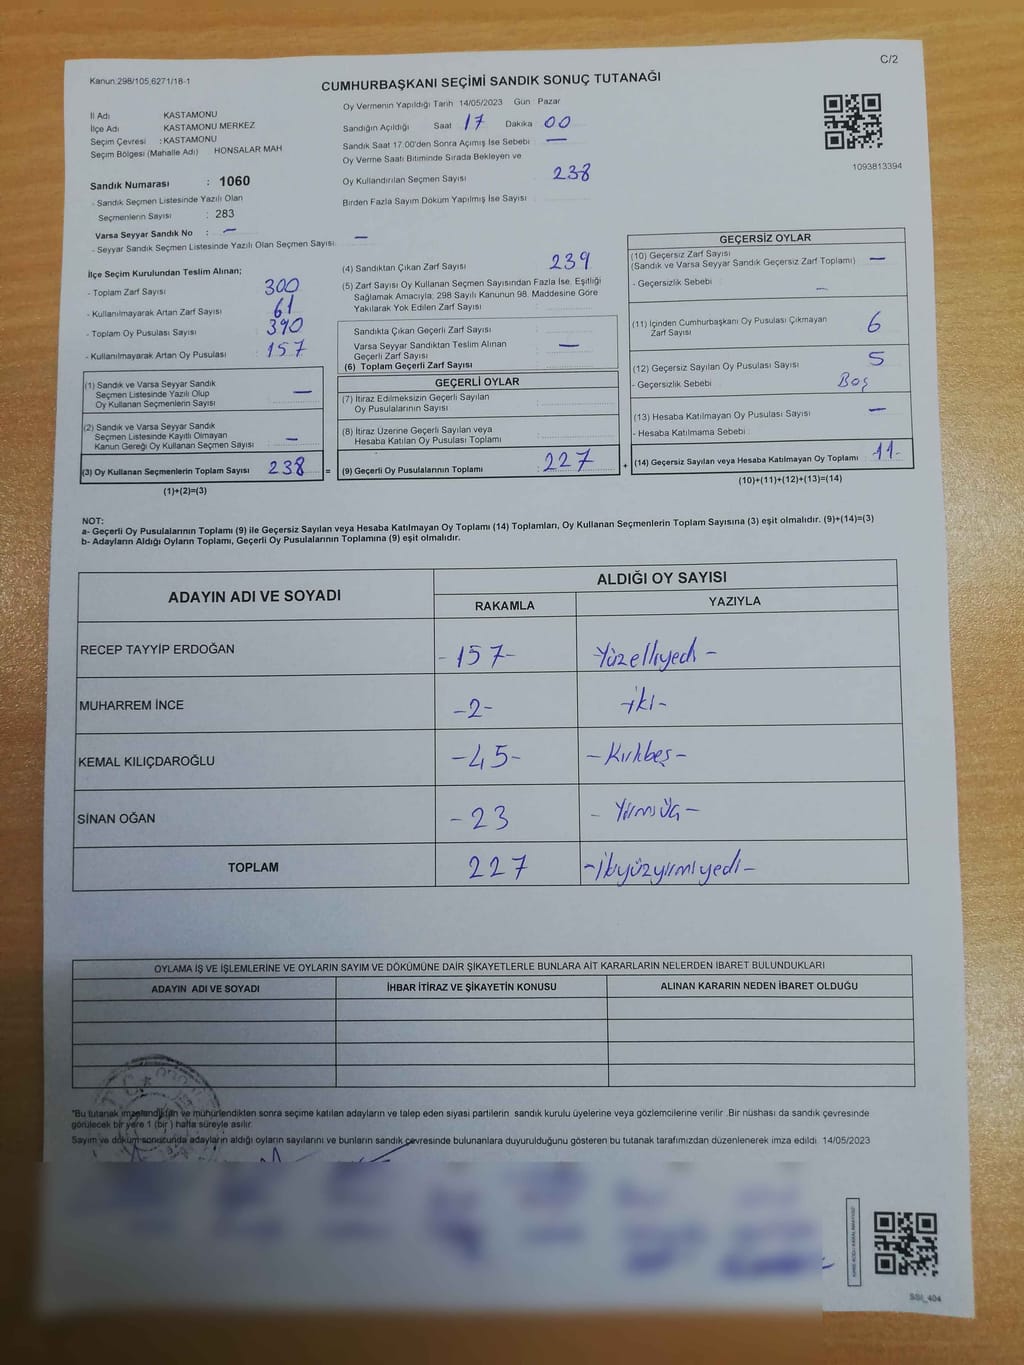 Kanun 298/105,6271/18-1
C/2
CUMHURBAŞKANI SEÇİMİ SANDIK SONUÇ TUTANAĞI
İl Adı KASTAMONU
İlçe Adı KASTAMONU MERKEZ
Seçim Çevresi : KASTAMONU
Seçim Bölgesi (Mahalle Adı) HONSALAR MAH
Sandık Numarası : 1060
- Sandık Seçmen Listesinde Yazılı Olan
Seçmenlerin Sayısı : 283
Varsa Seyyar Sandık No : —
- Seyyar Sandık Seçmen Listesinde Yazılı Olan Seçmen Sayısı —
Oy Vermenin Yapıldığı Tarih 14/05/2023 Gün Pazar
Sandığın Açıldığı Saat 17 Dakika 00
Sandık Saat 17.00'den Sonra Açımış İse Sebebi —
Oy Verme Saati Bitiminde Sırada Bekleyen ve
Oy Kullandırılan Seçmen Sayısı 238
Birden Fazla Sayım Döküm Yapılmış İse Sayısı
1093813394
İlçe Seçim Kurulundan Teslim Alınan;
- Toplam Zarf Sayısı 300
- Kullanılmayarak Artan Zarf Sayısı 61
- Toplam Oy Pusulası Sayısı 390
- Kullanılmayarak Artan Oy Pusulası 157
(1) Sandık ve Varsa Seyyar Sandık
Seçmen Listesinde Yazılı Olup
Oy Kullanan Seçmenlerin Sayısı —
(2) Sandık ve Varsa Seyyar Sandık
Seçmen Listesinde Kayıtlı Olmayan
Kanun Gereği Oy Kullanan Seçmen Sayısı —
(3) Oy Kullanan Seçmenlerin Toplam Sayısı 238 =
(1)+(2)=(3)
(4) Sandıktan Çıkan Zarf Sayısı 239
(5) Zarf Sayısı Oy Kullanan Seçmen Sayısından Fazla İse, Eşitliği
Sağlamak Amacıyla; 298 Sayılı Kanunun 98. Maddesine Göre
Yakılarak Yok Edilen Zarf Sayısı
Sandıkta Çıkan Geçerli Zarf Sayısı
Varsa Seyyar Sandıktan Teslim Alınan
Geçerli Zarf Sayısı —
(6) Toplam Geçerli Zarf Sayısı
GEÇERLİ OYLAR
(7) İtiraz Edilmeksizin Geçerli Sayılan
Oy Pusulalarının Sayısı
(8) İtiraz Üzerine Geçerli Sayılan veya
Hesaba Katılan Oy Pusulası Toplamı
(9) Geçerli Oy Pusulalarının Toplamı : 227 +
GEÇERSİZ OYLAR
(10) Geçersiz Zarf Sayısı
(Sandık ve Varsa Seyyar Sandık Geçersiz Zarf Toplamı) —
- Geçersizlik Sebebi —
(11) İçinden Cumhurbaşkanı Oy Pusulası Çıkmayan
Zarf Sayısı 6
(12) Geçersiz Sayılan Oy Pusulası Sayısı 5
- Geçersizlik Sebebi Boş
(13) Hesaba Katılmayan Oy Pusulası Sayısı —
- Hesaba Katılmama Sebebi
(14) Geçersiz Sayılan veya Hesaba Katılmayan Oy Toplamı 11-
(10)+(11)+(12)+(13)=(14)
NOT:
a- Geçerli Oy Pusulalarının Toplamı (9) ile Geçersiz Sayılan veya Hesaba Katılmayan Oy Toplamı (14) Toplamları, Oy Kullanan Seçmenlerin Toplam Sayısına (3) eşit olmalıdır. (9)+(14)=(3)
b- Adayların Aldığı Oyların Toplamı, Geçerli Oy Pusulalarının Toplamına (9) eşit olmalıdır.
ADAYIN ADI VE SOYADI ALDIĞI OY SAYISI
RAKAMLA YAZIYLA
RECEP TAYYİP ERDOĞAN -157- Yüzelliyedi -
MUHARREM İNCE -2- -iki-
KEMAL KILIÇDAROĞLU -45- -Kırkbeş-
SİNAN OĞAN -23 - Yirmiüç -
TOPLAM 227 -İkiyüzyirmiyedi-
OYLAMA İŞ VE İŞLEMLERİNE VE OYLARIN SAYIM VE DÖKÜMÜNE DAİR ŞİKAYETLERLE BUNLARA AİT KARARLARIN NELERDEN İBARET BULUNDUKLARI
ADAYIN ADI VE SOYADI İHBAR İTİRAZ VE ŞİKAYETİN KONUSU ALINAN KARARIN NEDEN İBARET OLDUĞU
*Bu tutanak imzalandıktan ve mühürlendikten sonra seçime katılan adayların ve talep eden siyasi partilerin sandık kurulu üyelerine veya gözlemcilerine verilir .Bir nüshası da sandık çevresinde
görülecek bir yere 1 (bir ) hafta süreyle asılır.
Sayım ve döküm sonucunda adayların aldığı oyların sayılarını ve bunların sandık çevresinde bulunanlara duyurulduğunu gösteren bu tutanak tarafımızdan düzenlenerek imza edildi. 14/05/2023
SSI_404